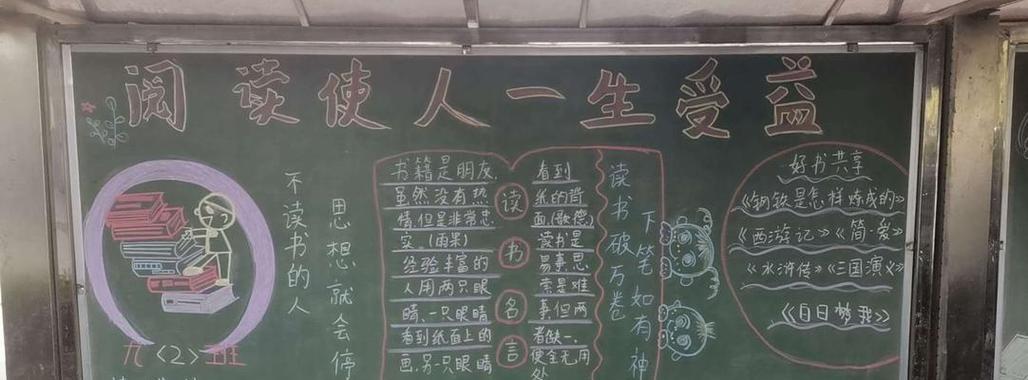 阅读使人一生受益
九〈2〉班
不读书的人
思想就会停
书籍是朋友,
虽然没有热
情但是非常忠
实。(雨果)
经验丰富的
人用两只眼
睛,一只眼睛
看到纸面上的
画,另一只眼睛
读书名言
看到
纸的背
面(歌德)
读书是
易事思
索是难
事但两
者缺一,
便全无用
处
读书破万卷
下笔如有神
好书共享
《钢铁是怎样炼成的》
《西游记》《简·爱》
《水浒传》《三国演义》